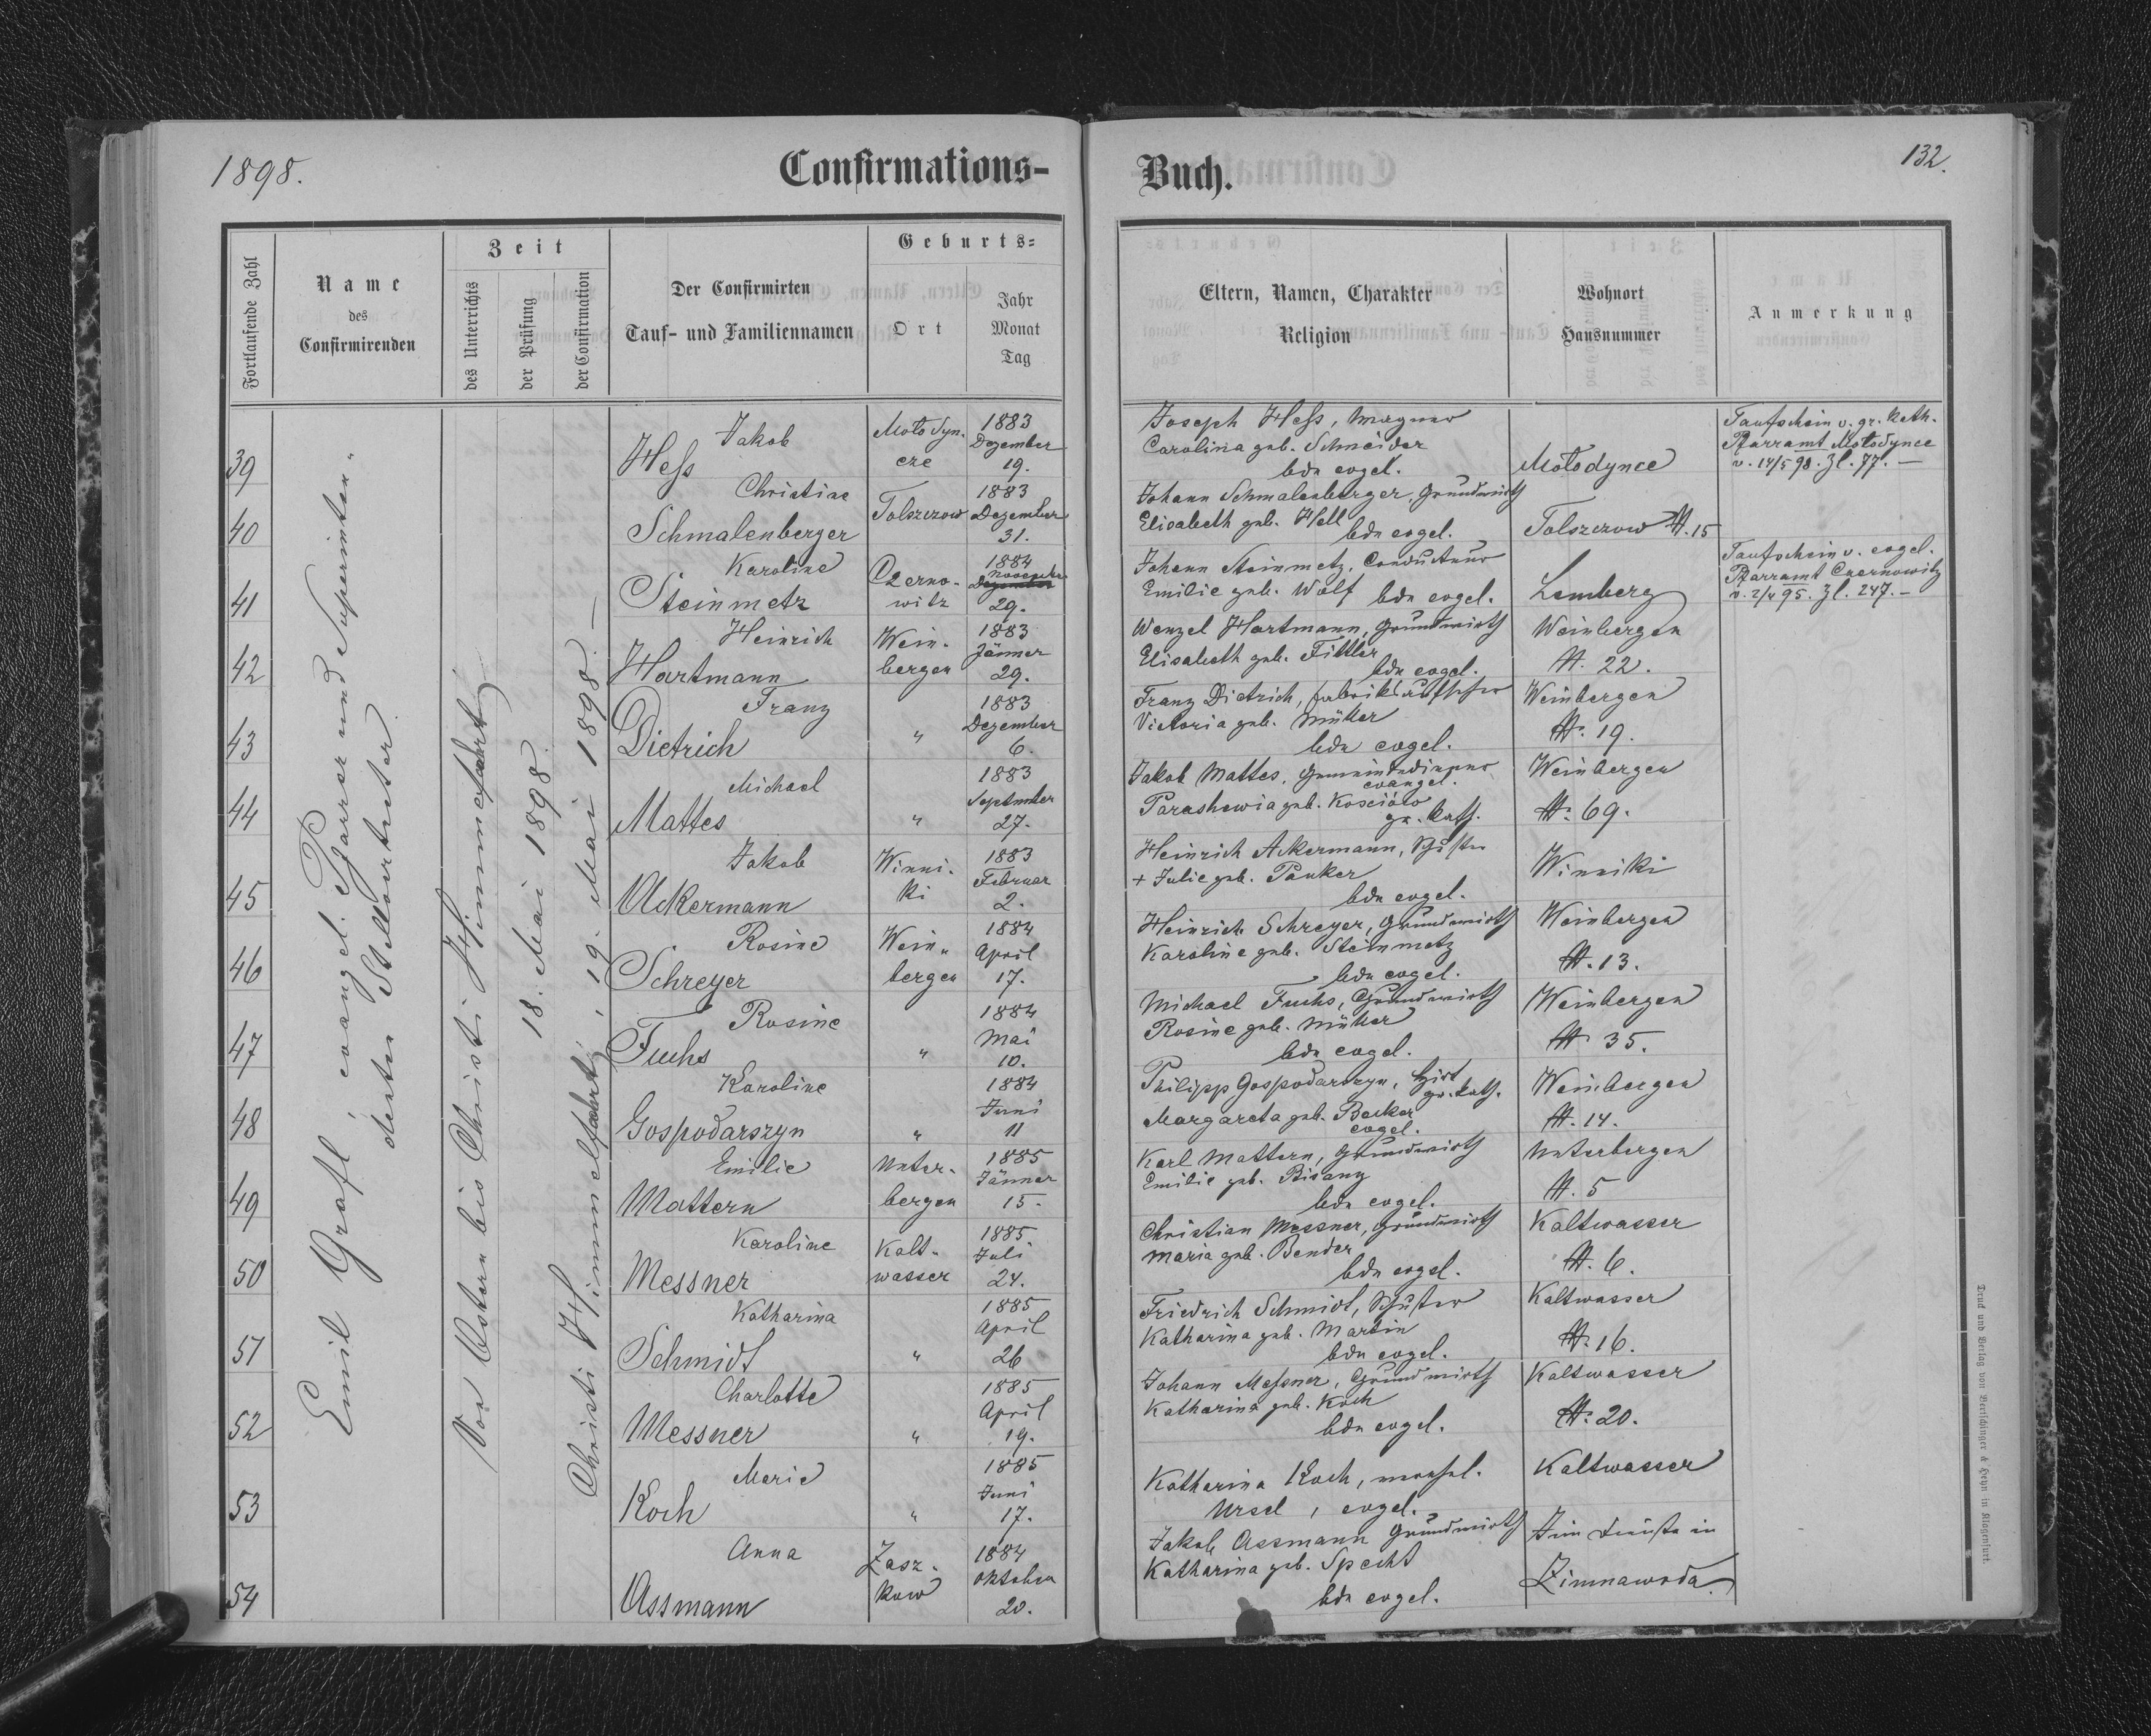 1898.
Confirmations-
Buch.
132.
Fortlaufende Zahl
Name
des
Confirmirenden
Zeit
des Unterrichts
der Prüfung
der Confirmation
Der Confirmirten
Tauf- und Familiennamen
Geburts-
Ort
Jahr
Monat
Tag
Eltern, Namen, Charakter
Religion
Wohnort
Hausnummer
Anmerkung
Emil Grafl evangel. Pfarrer und Superinten-
denten Stellvertreter.
Von Ostern bis Christi Himmelfahrt,
18. Mai 1898.
Christi Himmelfahrt, 19. Mai 1898. —
39
Jakob
Hess
Mołodyn-
cze
1883
Dezember
19.
Joseph Hess, Wagner
Carolina geb. Schneider
bde evgel.
Mołodynce
Taufschein v. gr. kath.
Pfarramt Mołodynce
v. 14/5 98. Zl. 77. —
40
Christine
Schmalenberger
Tolszczow
1883
Dezember
31.
Johann Schmalenberger, Grundwirth
Elisabeth geb. Hell
bde evgel.
Tolszczow N. 15
41
Karoline
Steinmetz
Czerno-
witz
1884
November
29.
Johann Steinmetz, Conducteur
Emilie geb. Wolf bde evgel.
Lemberg
Taufschein v. evgel.
Pfarramt Czernowitz
v. 2/4 95. Zl. 247. —
42
Heinrich
Hartmann
Wein-
bergen
1883
Jänner
29.
Wenzel Hartmann, Grundwirth
Elisabeth geb. Fittler
bde evgel.
Weinbergen
N. 22.
43
Franz
Dietrich
"
1883
Dezember
6.
Franz Dietrich, Fabriksaufseher
Victoria geb. Müller
bde evgel.
Weinbergen
N. 19.
44
Michael
Mattes
"
1883
September
27.
Jakob Mattes, Gemeindediener
evangel.
Parashewia geb. Kosciów
gr. kath.
Weinbergen
N. 69.
45
Jakob
Ackermann
Winni-
ki
1883
Februar
2.
Heinrich Ackermann, Schuster
+ Julie geb. Pauker
bde evgel.
Winniki
46
Rosine
Schreyer
Wein-
bergen
1884
April
17.
Heinrich Schreyer, Grundwirth
Karoline geb. Steinmetz
bde evgel.
Weinbergen
N. 13.
47
Rosine
Fuchs
"
1884
Mai
10.
Michael Fuchs, Grundwirth
Rosine geb. Müller
bde evgel.
Weinbergen
N. 35.
48
Karoline
Gospodarszyn
"
1884
Juni
11
Philipp Gospodarszyn, Hirt
gr. kath.
Margareta geb. Becker
evgel.
Weinbergen
N. 14.
49
Emilie
Mattern
Unter-
bergen
1885
Jänner
15.
Karl Mattern, Grundwirth
Emilie geb. Bisanz
bde evgel.
Unterbergen
N. 5
50
Karoline
Messner
Kalt-
wasser
1885
Juli
24.
Christian Messner, Grundwirth
Maria geb. Bender
bde evgel.
Kaltwasser
N. 6.
51
Katharina
Schmidt
"
1885
April
26
Friedrich Schmidt, Schuster
Katharina geb. Martin
bde evgel.
Kaltwasser
N. 16.
52
Charlotte
Messner
"
1885
April
19.
Johann Messner, Grundwirth
Katharina geb. Koch
bde evgel.
Kaltwasser
N. 20.
53
Marie
Koch
"
1885
Juni
17.
Katharina Koch,
Ursel, evgel.
Kaltwasser
54
Anna
Assmann
Zasz-
kow
1884
Oktober
20.
Jakob Assmann Grundwirth
Katharina geb. Specht
bde evgel.
Im Dienste in
Zimnawoda.
Druck und Verlag von Bertschinger & Heyn in Klagenfurt.